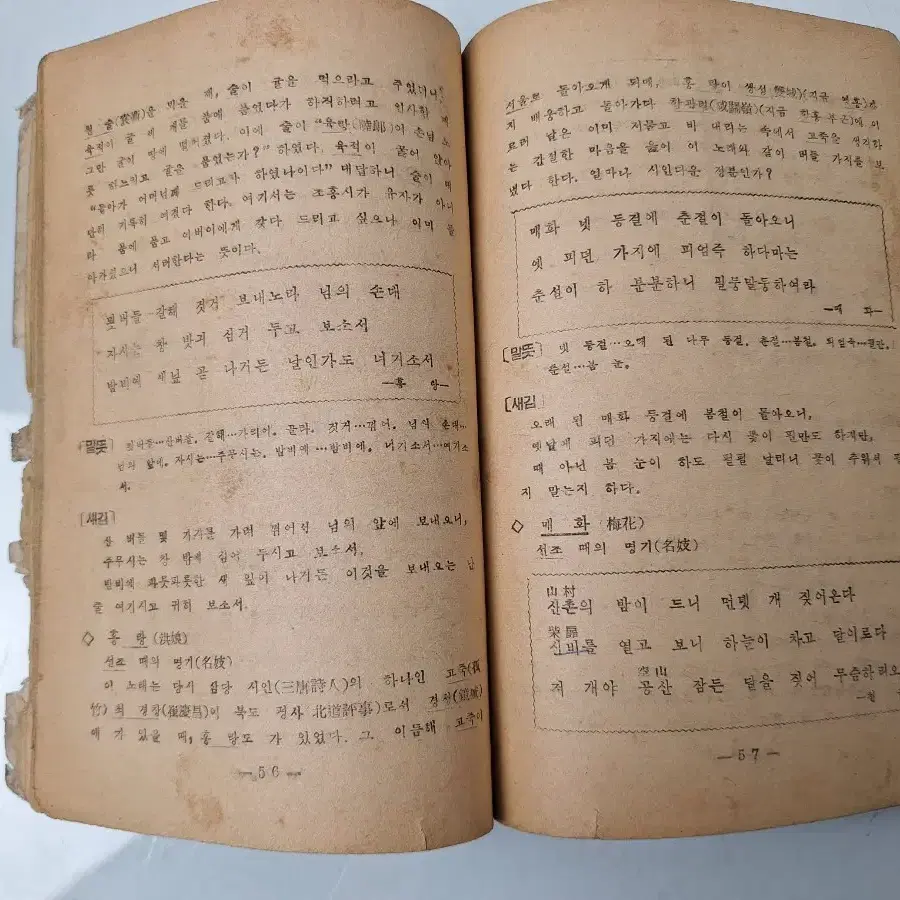 원 술(袁術)을 따을 때, 술이 귤을 먹으라고 주었더니,
육적이 귤 세 개를 품에 품었다가 하직하려고 인사할 때
그만 귤이 땅에 떨어졌다. 이에 술이 "육랑(陸郎)이 손님
못 하느리고 귤을 품었는가?" 하였다. 육적이 꿇어 앉아
"돌아가 어머님께 드리고자 하였나이다" 대답하니 술이 매
단히 기특히 여겼다 한다. 여기서는 조홍시가 유자가 아니
라 품에 품고 어버이에게 갖다 드리고 싶으나 이미 돌
아가셨으니 서러한다는 뜻이다.
묏버들 갈해 것거 보내노라 님의 손대
자시는 창 밧긔 심거 두고 보소서
밤비에 새닢 곧 나거든 날인가도 너기소서
—홍 랑—
[말뜻] 묏버들…산버들. 갈해…가리어. 골라. 것거…꺾어. 님의 손대…
님의 앞에. 자시는…주무시는. 밤비에…밤비에. 너기소서…여기소
서.
[새김]
산 버들 몇 가지를 가려 꺾어서 님의 앞에 보내오니,
주무시는 창 밖에 심어 두시고 보소서,
밤비에 파릇파릇한 새 잎이 나거든 이것을 보내오는 난
줄 여기시고 귀히 보소서.
◇ 홍 랑(洪娘)
선조 때의 명기(名妓)
이 노래는 당시 삼당 시인(三唐詩人)의 하나인 고죽(孤
竹) 최 경창(崔慶昌)이 북도 평사(北道評事)로서 경성(鏡城)
에 가 있을 때, 홍 랑도 가 있었다. 그 이듬해 고죽이
—56—
서울로 돌아오게 되매, 홍 랑이 쌍성(雙城)(지금 영흥)까
지 배웅하고 돌아가다 함관령(咸關嶺)(지금 함흥 부근)에 이
르러 날은 이미 저물고 비 내리는 속에서 고죽을 생각하
는 간절한 마음을 읊어 이 노래와 같이 버들 가지를 보
냈다 한다. 얼마나 시인다운 정분인가?
매화 녯 등걸에 춘절이 돌아오니
옛 피던 가지에 피엄즉 하다마는
춘설이 하 분분하니 필똥말똥하여라
—매 화—
[말뜻] 녯 등걸…오래 된 나무 등걸. 춘절…봄철. 피엄즉…필만.
춘설…봄 눈.
[새김]
오래 된 매화 등걸에 봄철이 돌아오니,
옛날에 피던 가지에는 다시 꽃이 필만도 하지만,
때 아닌 봄 눈이 하도 펄펄 날리니 꽃이 추워서 필
지 말는지 하다.
◇ 매 화 (梅花)
선조 때의 명기(名妓)
山村
산촌의 밤이 드니 먼뎃 개 짖어온다
柴扉
싀비를 열고 보니 하늘이 차고 달이로다
空山
저 개야 공산 잠든 달을 짖어 무슴하려오
—57—